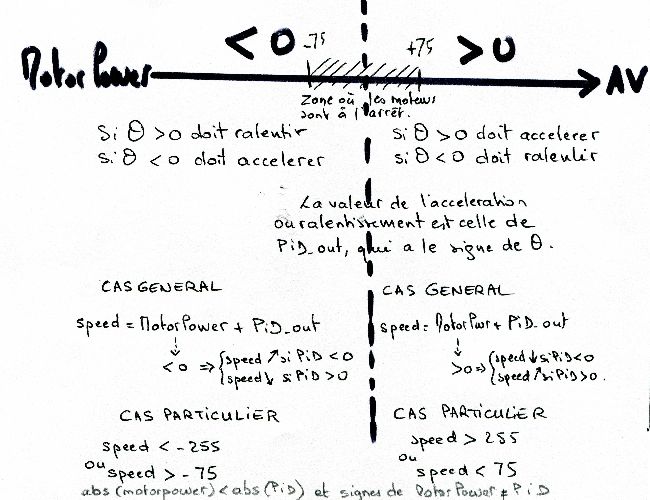 < 0 -75 +75 > 0
MotorPower AV
Zone où les moteurs
sont à l'arrêt.
Si θ > 0 doit ralentir
si θ < 0 doit accelerer
si θ > 0 doit accelerer
si θ < 0 doit ralentir
La valeur de l'acceleration
ou ralentissement est celle de
PiD_out, qui a le signe de θ.
CAS GENERAL
speed = MotorPower + PiD_out
< 0 ⇒ { speed ↗ si PiD < 0
speed ↓ si PiD > 0
CAS PARTICULIER
speed < -255
ou speed > -75
CAS GENERAL
speed = MotorPwr + PiD_out
> 0 ⇒ { speed ↓ si PiD < 0
speed ↗ si PiD > 0.
CAS PARTICULIER
speed > 255
ou speed < 75
abs (motorpower) < abs (PiD) et signes de MotorPower ≠ PiD